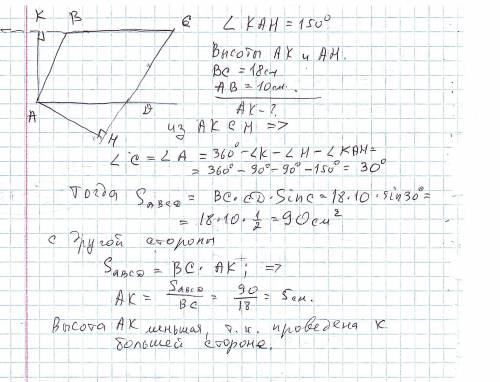 K B C
∠ KAH = 150°
Высоты AK и AH.
BC = 18см
AB = 10см.
AK - ?
A D
H
из AKCH =>
∠C = ∠A = 360° - ∠K - ∠H - ∠KAH =
= 360° - 90° - 90° - 150° = 30°
Тогда S ABCD = BC · CD · Sin C = 18 · 10 · sin 30° =
= 18 · 10 · 1/2 = 90 см²
с другой стороны
S ABCD = BC · AK; =>
AK = S ABCD / BC = 90/18 = 5 см.
Высота AK меньшая, т.к. проведена к
большей стороне.